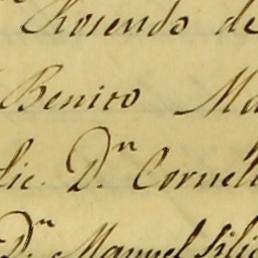 Rosendo de
Benito Ma
Lic. D.n Corneli
D.n Manuel Silic